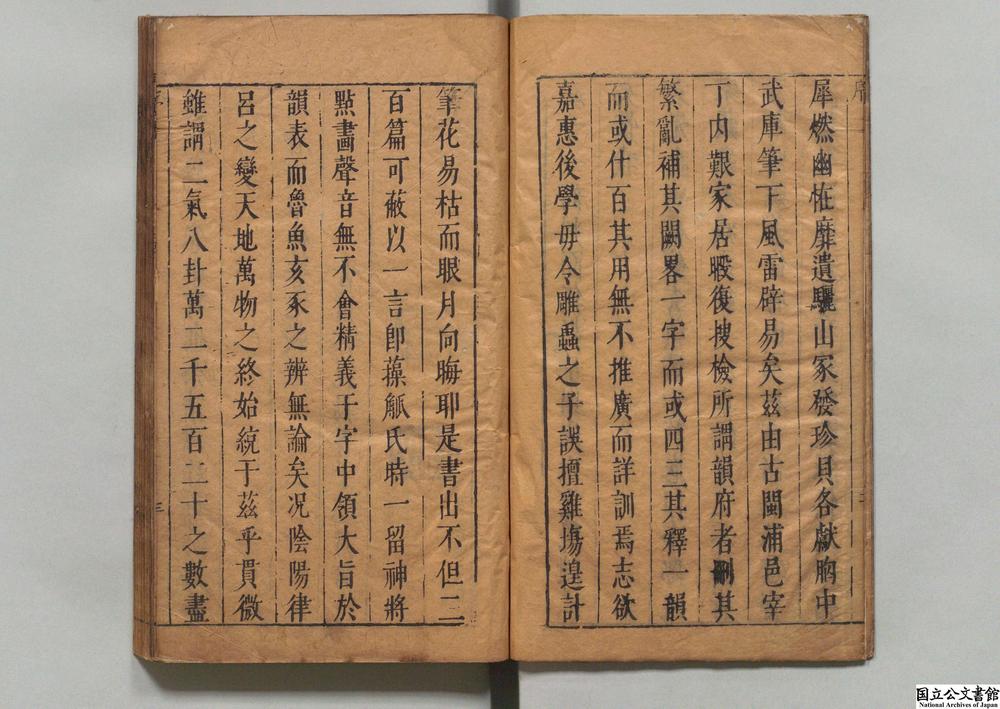 序
犀燃幽恠靡遺驪山冢發珍貝各獻胸中
武庫筆下風雷辟易矣茲由古閩浦邑宰
丁內艱家居暇復搜檢所謂韻府者刪其
繁亂補其闕畧一字而或四三其釋一韻
而或什百其用無不推廣而詳訓焉志欲
嘉惠後學毋令雕蟲之子誤擅雞塲遑計
二
筆花易枯而眼月向晦耶是書出不但二
百篇可蔽以一言卽藻觚氏時一留神將
點畫聲音無不會精義于字中領大旨於
韻表而魯魚亥豕之辨無論矣况陰陽律
呂之變天地萬物之終始統于茲乎貫微
雖謂二氣八卦萬二千五百二十之數盡
序
三
国立公文書館
National Archives of Japan